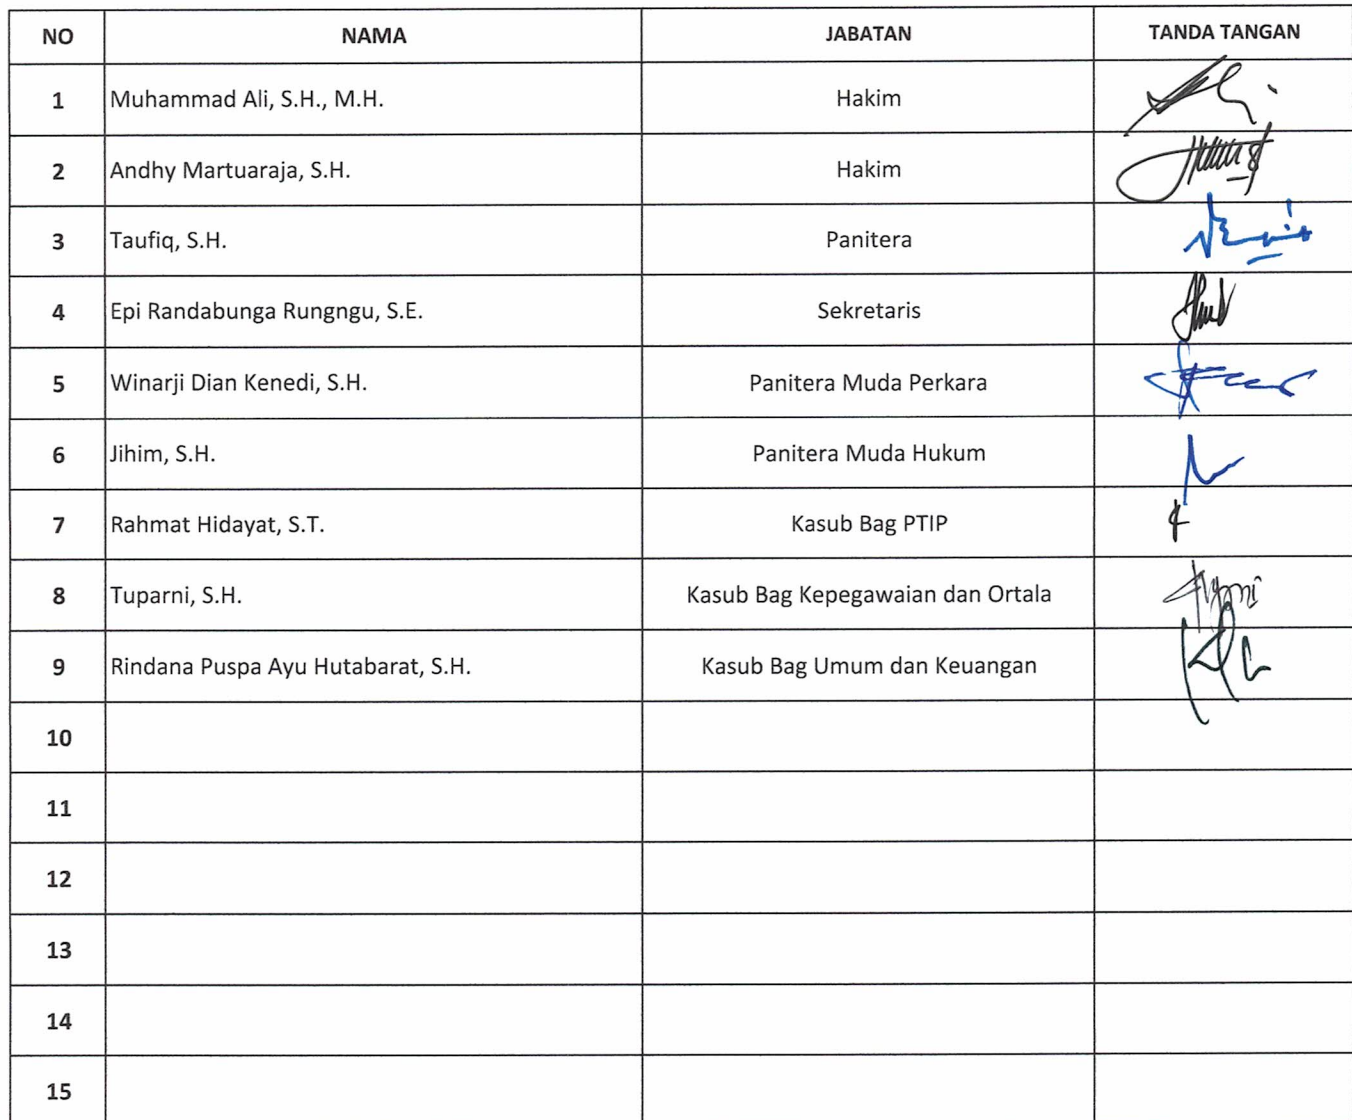 NO NAMA JABATAN TANDA TANGAN
1 Muhammad Ali, S.H., M.H. Hakim
2 Andhy Martuaraja, S.H. Hakim
3 Taufiq, S.H. Panitera
4 Epi Randabunga Rungngu, S.E. Sekretaris
5 Winarji Dian Kenedi, S.H. Panitera Muda Perkara
6 Jihim, S.H. Panitera Muda Hukum
7 Rahmat Hidayat, S.T. Kasub Bag PTIP
8 Tuparni, S.H. Kasub Bag Kepegawaian dan Ortala
9 Rindana Puspa Ayu Hutabarat, S.H. Kasub Bag Umum dan Keuangan
10
11
12
13
14
15